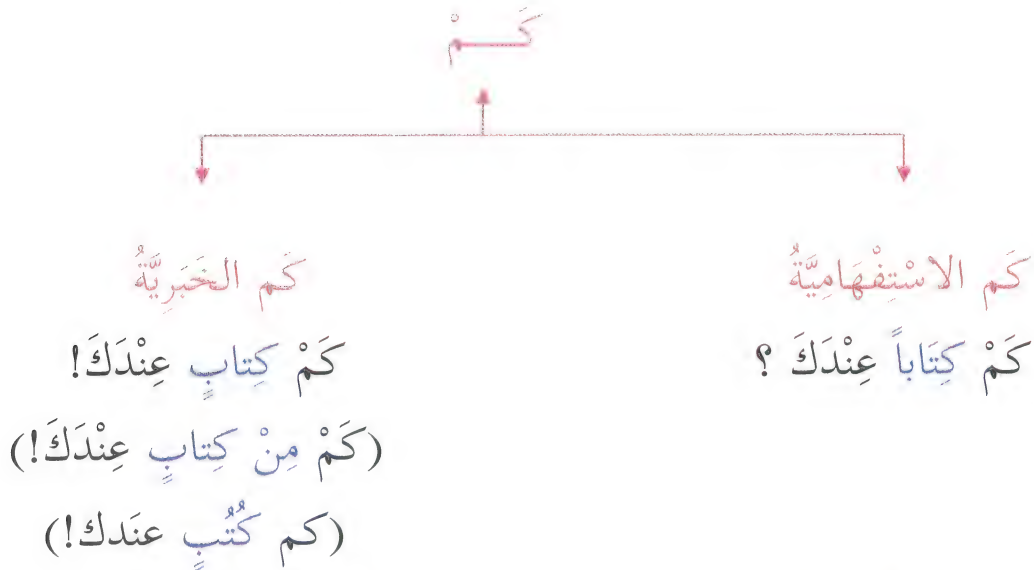 كَـــمْ
كَم الاسْتِفْهَامِيَّةُ
كَمْ كِتَاباً عِنْدَكَ ؟
كَم الخَبَرِيَّةُ
كَمْ كِتابٍ عِنْدَكَ!
(كَمْ مِنْ كِتابٍ عِنْدَكَ!)
(كم كُتُبٍ عنَدك!)